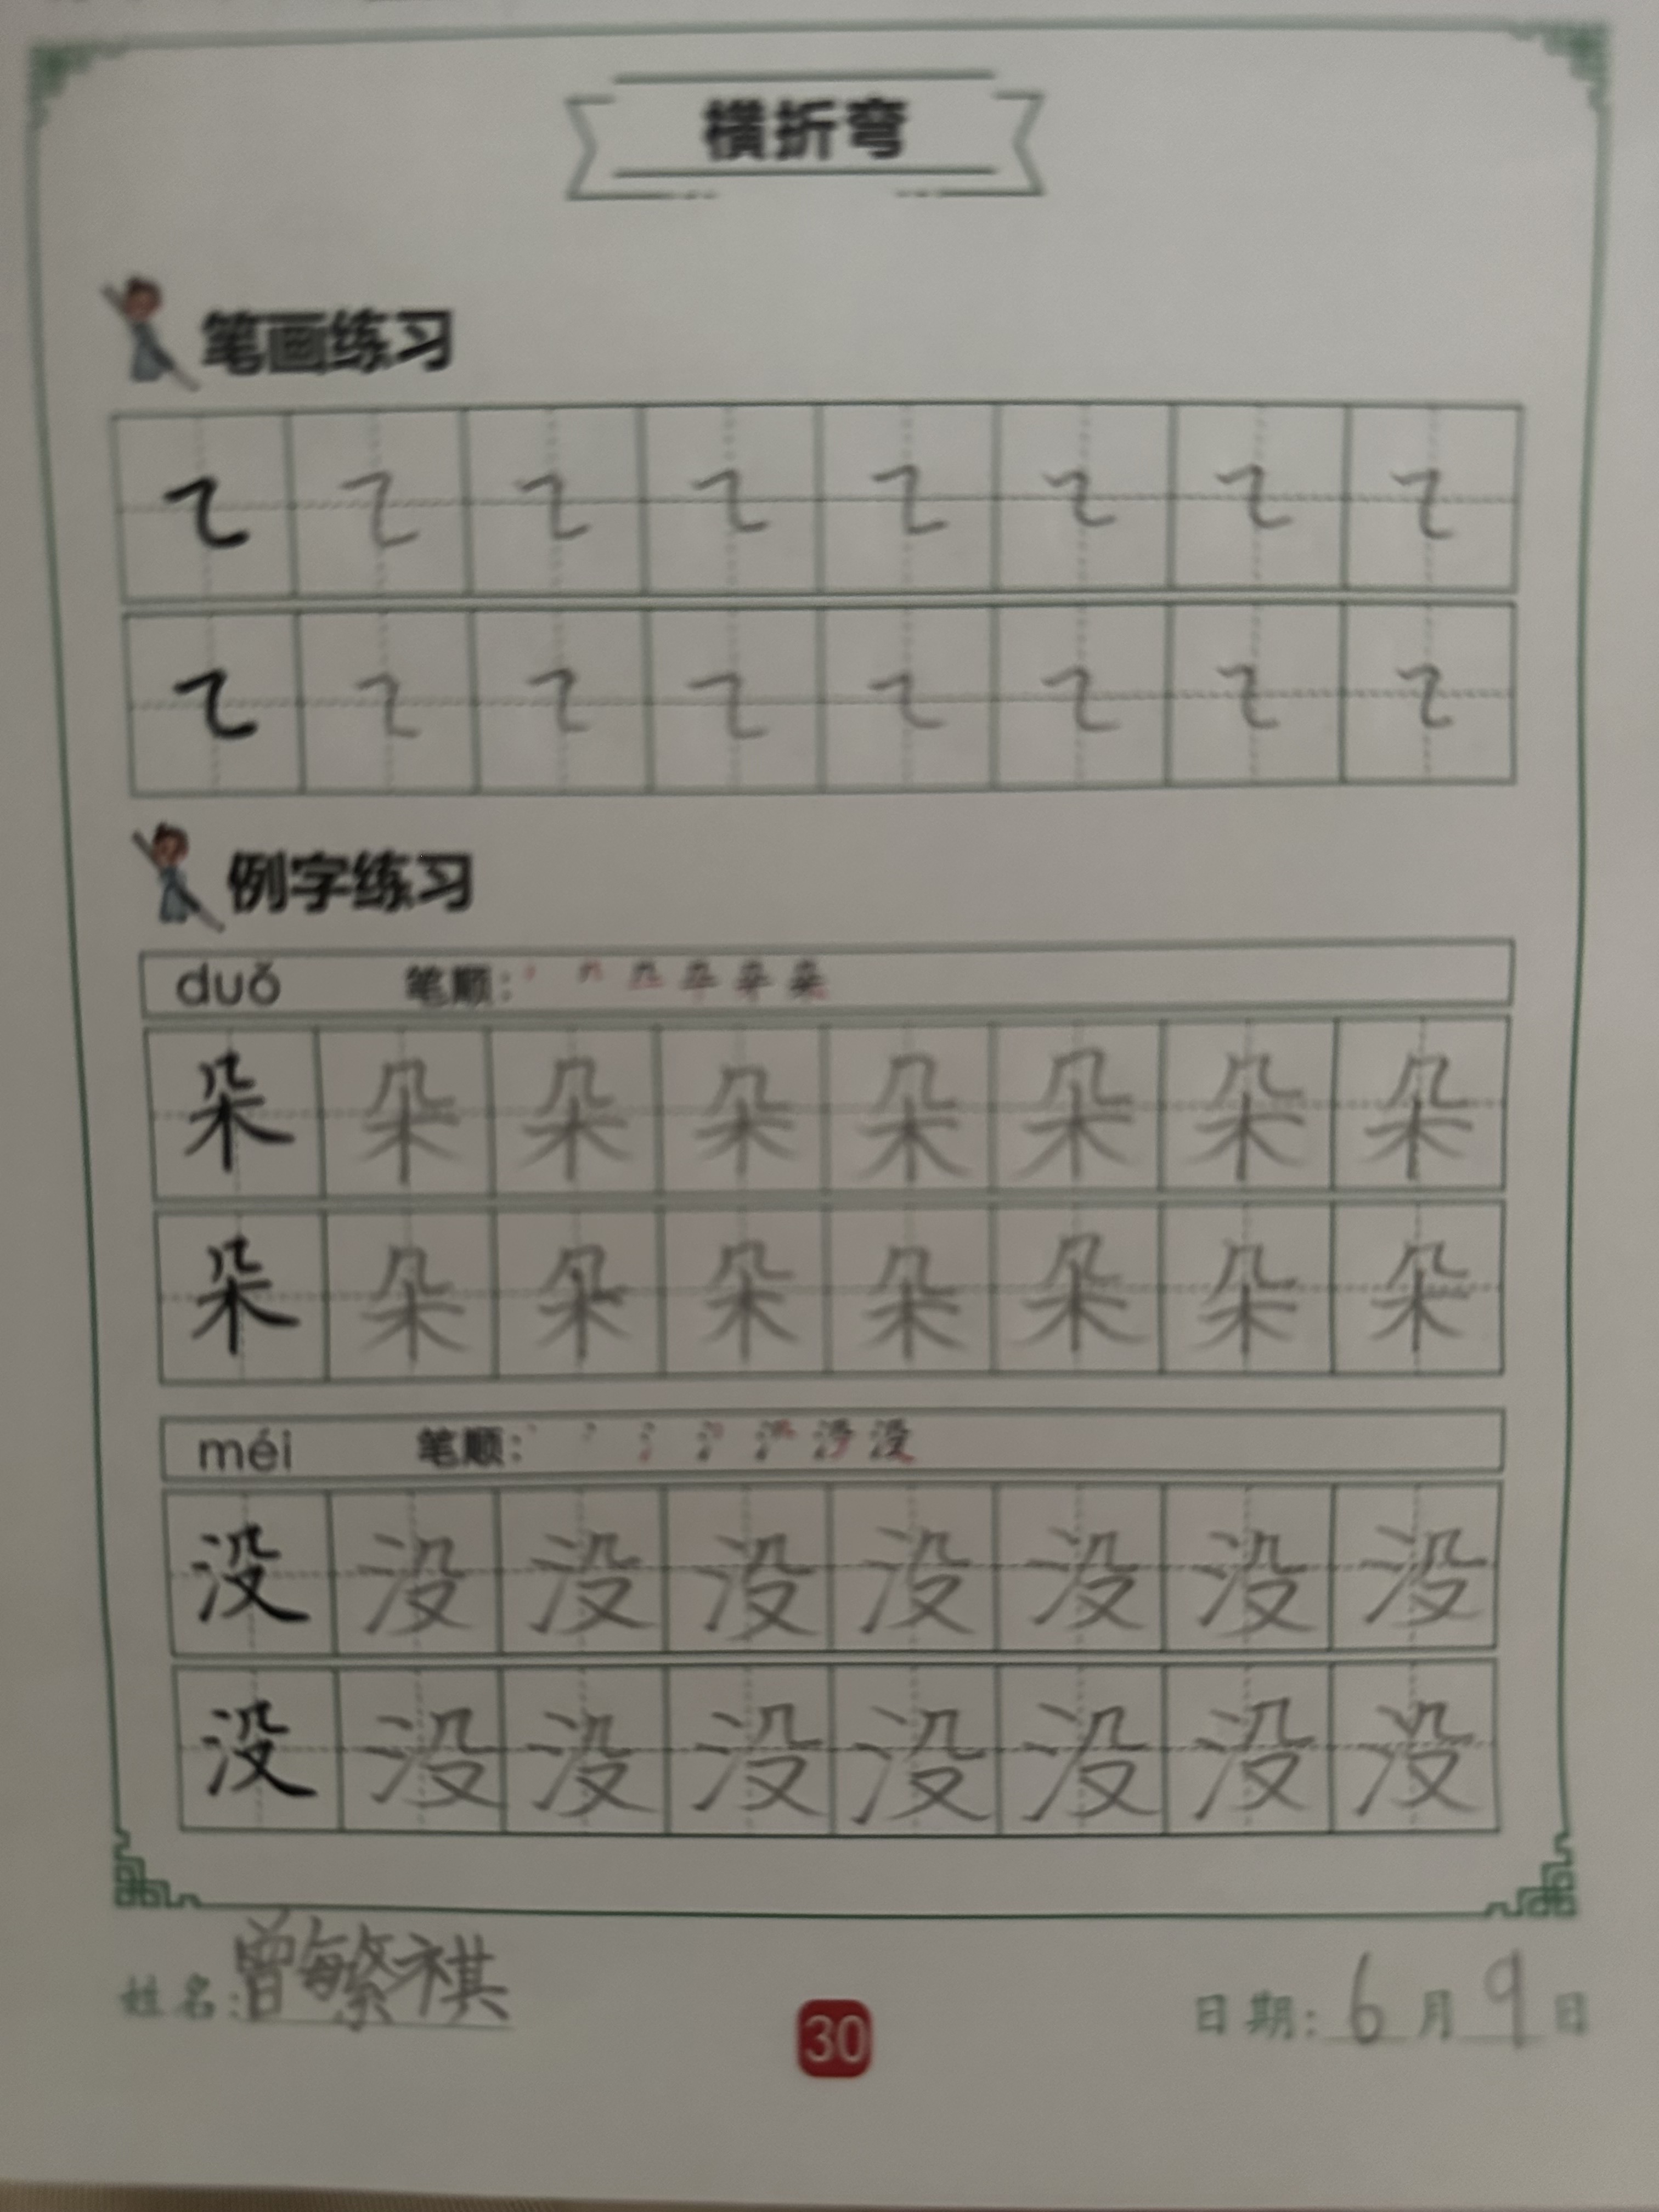 横折弯
笔画练习
㇍ ㇍ ㇍ ㇍ ㇍ ㇍ ㇍ ㇍
㇍ ㇍ ㇍ ㇍ ㇍ ㇍ ㇍ ㇍
例字练习
duǒ 笔顺:
朵 朵 朵 朵 朵 朵 朵 朵
朵 朵 朵 朵 朵 朵 朵 朵
méi 笔顺:
没 没 没 没 没 没 没 没
没 没 没 没 没 没 没 没
姓名:曾繁祺 30 日期:6月9日